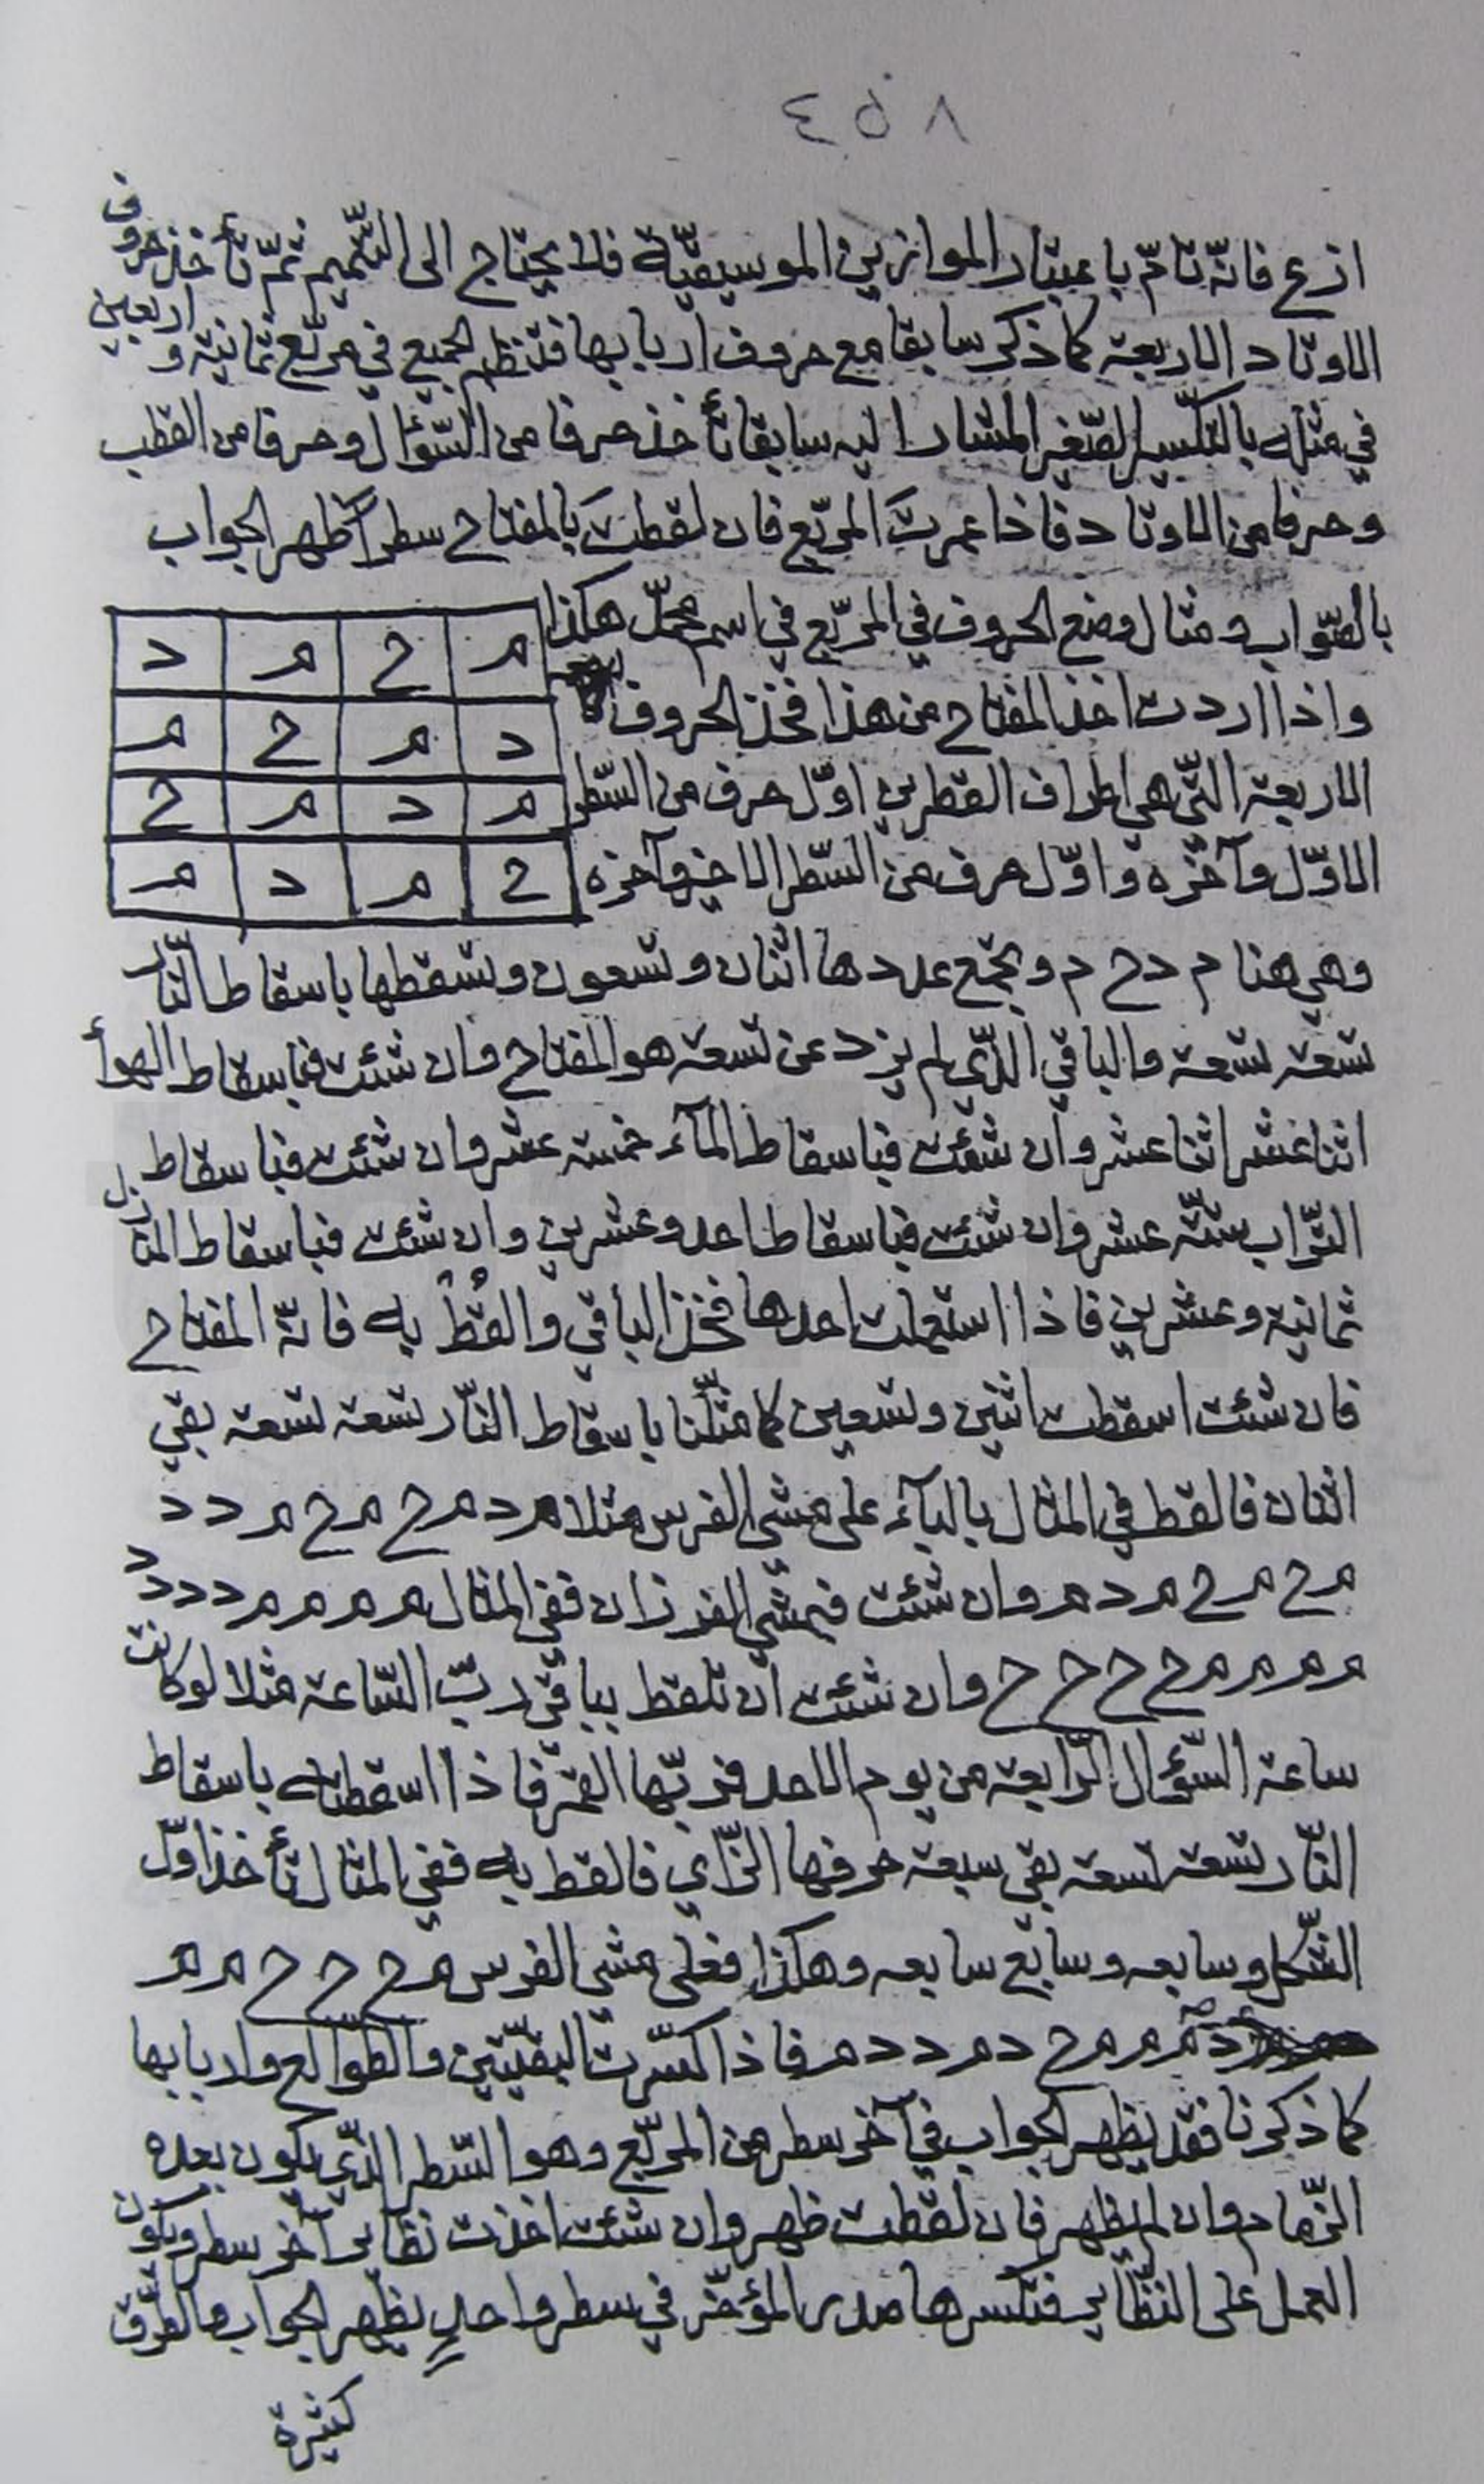 ٤٥٨
ازع فانّه تامّ باعتبار الموازين الموسيقيّة فلا يحتاج الى التتميم ثمّ تأخذ حروف
الاوتاد الاربعة كما ذكر سابقا مع حروف اربابها فتنظم الجميع في مربّع ثمانية واربعين
في مثله بالتكسير الصّغير المشار اليه سابقا تأخذ حرفا من السّؤال وحرفا من القطب
وحرفا من الاوتاد فاذا عمرت المربّع فان لقطت بالمفتاح سطرا ظهر الجواب
بالصّواب ومثال وضع الحروف في المربّع في اسم محمّد هكذا
واذا اردت اخذ المفتاح من هذا فخذ الحروف
الاربعة الّتي هي اطراف القطرين اوّل حرف من السّطر
الاوّل وآخره واوّل حرف من السّطر الاخير وآخره
م ح م د
د م ح م
م د م ح
ح م د م
وهي هنا م د ح م ويجمع عددها اثنان وتسعون وتسقطها باسقاط النّار
تسعة تسعة والباقي الّذي لم يزد عن تسعة هو المفتاح وان شئت فباسقاط الهوأ
اثنا عشر اثنا عشر وان شئت فباسقاط المآء خمسة عشر وان شئت فباسقاط
التّراب ستّة عشر وان شئت فباسقاط احد وعشرين وان شئت فباسقاط المنازل
ثمانية وعشرين فاذا استعملت احدها فخذ الباقي والقط به فانّه المفتاح
فان شئت اسقطت اثنين وتسعين كما مثّلنا باسقاط النّار تسعة تسعة بقي
اثنان فالقط في المثال بالبآء على مشي الفرس مثلا م د م ح م ح م د د
م ح م ح م د م وان شئت فبمشي الفرزان ففي المثال م م م م د د د د
م م م م ح ح ح ح وان شئت ان تلقط بباقي ربّ السّاعة مثلا لو كانت
ساعة السّؤال الرّابعة من يوم الاحد فربّها القمر فاذا اسقطته باسقاط
النّار تسعة تسعة بقي سبعة حرفها الزّاي فالقط به ففي المثال تأخذ اوّل
الشّكل وسابعه وسابع سابعه وهكذا فعلى مشي الفرس م ح ح ح م م
د م م م ح د م د د م فاذا كسّرت البقيّتين والطوالع واربابها
كما ذكرنا فقد يظهر الجواب في آخر سطر من المربّع وهو السّطر الّذي يكون بعده
الزّمام وان لم يظهر فان لقطت ظهر وان شئت اخذت نظاير آخر سطر ويكون
العمل على النظاير فتكسرها صدر المؤخّر في سطر واحد يظهر الجواب والطرق
كثيرة